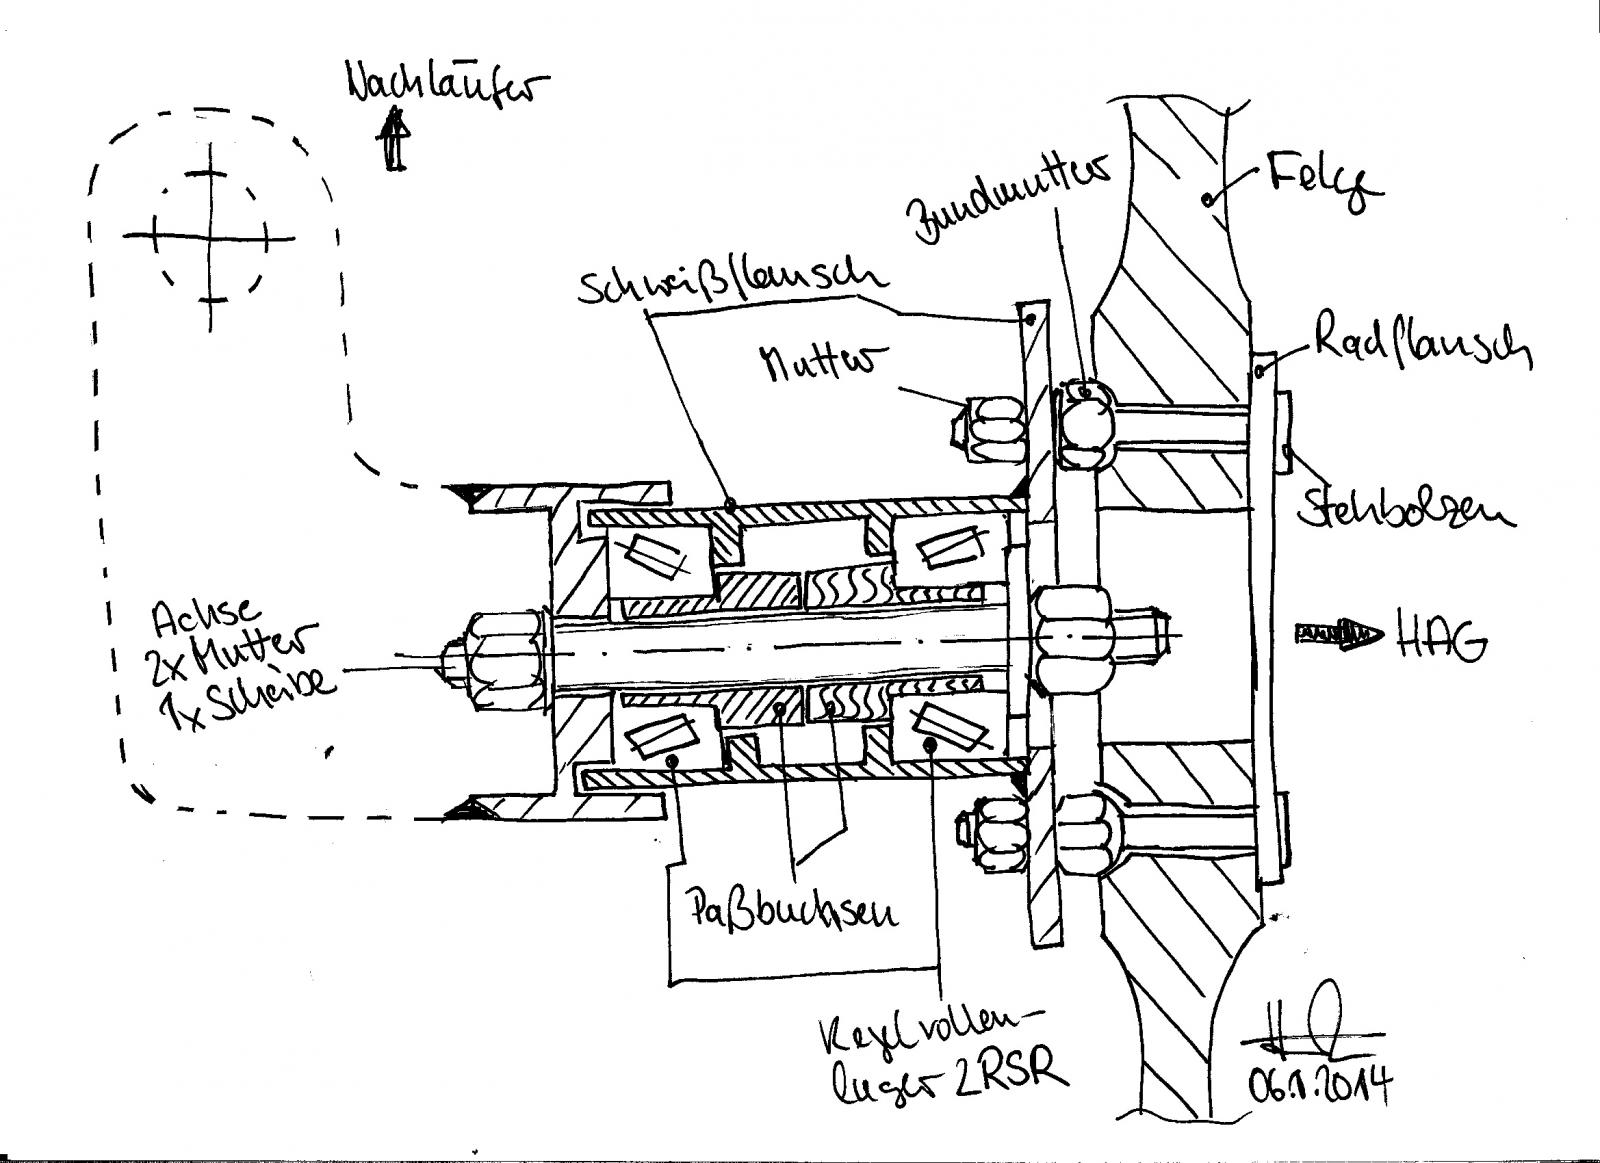 Nachläufer
Bundmutter
Felge
Schweißflansch
Mutter
Radflansch
Stehbolzen
Achse
2x Mutter
1x Scheibe
HAG
Paßbuchsen
Kegelrollen-
lager 2RSR
06.1.2014